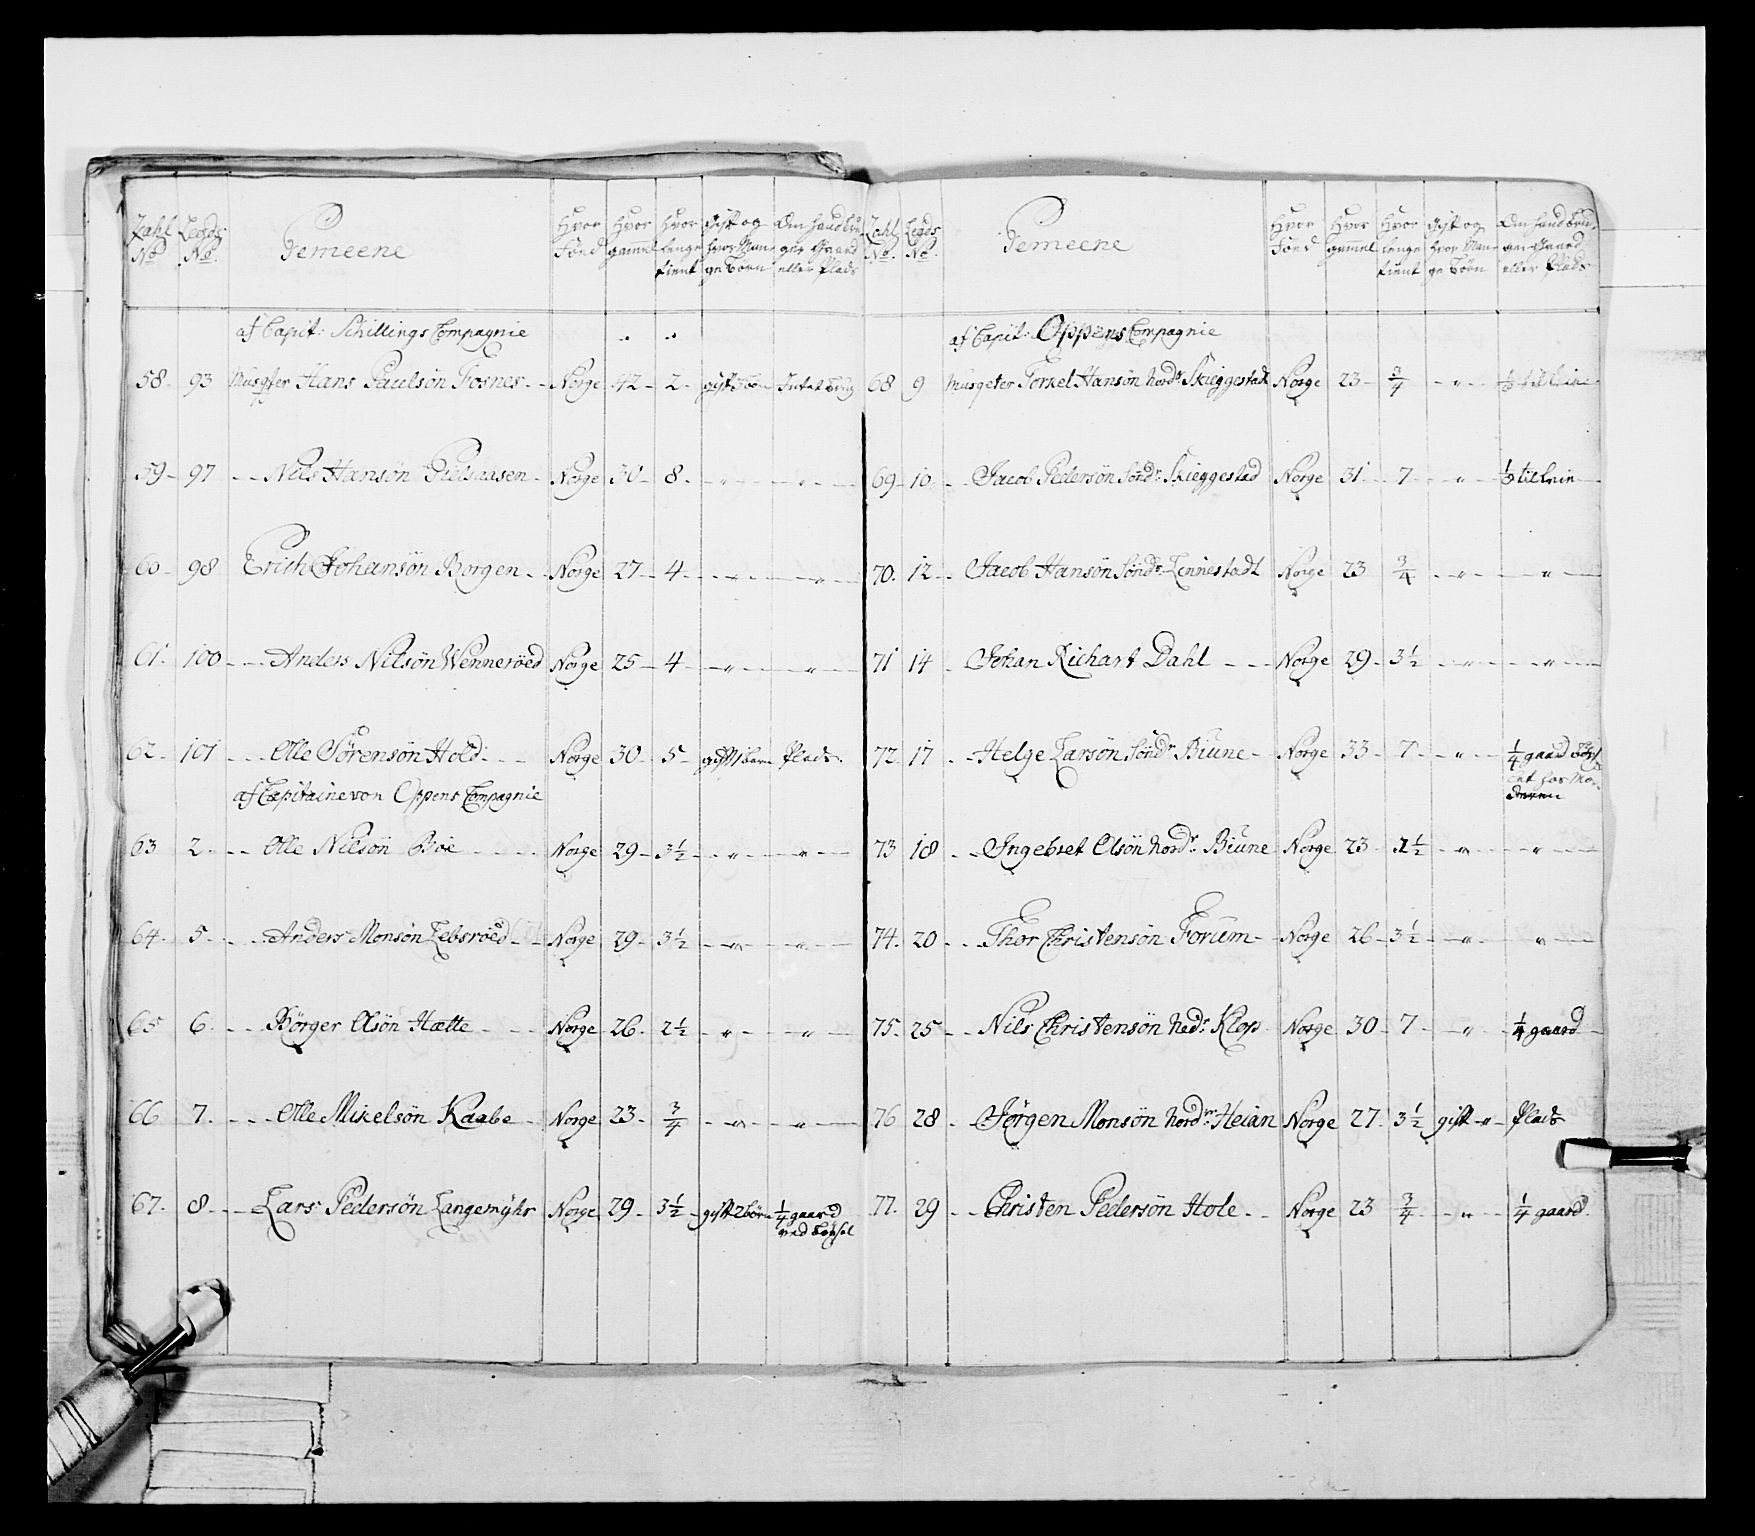 Zahl No Legds No. Gemeene Hvor Fönd Hvor gamel Hvor lenge tient Gift og hvor Mange Börn Om hand bruger Gaard eller Plads
af Capit: Schillings Compagnie
58 93 Musqter Hans Paulsön Fosnes Norge 42 2 gift 3 Intet
59 97 Nils Hansön Norge 30 8 " "
60 98 Erich Johansön Borgen Norge 27 4 " "
61 100 Anders Nilsön Wenneröed Norge 25 4 " "
62 101 Olle Sörensön Hold Norge 30 5 gift 1 barn Plads
af Capitaine von Oppens Compagnie
63 2 Olle Nilsön Böe Norge 29 3½ " "
64 5 Anders Monsön Lebsröed Norge 29 3½ " "
65 6 Börger Olsön Hætte Norge 26 2½ " "
66 7 Olle Mikelsön Kaabe Norge 23 ¾ " "
67 8 Lars Pedersön Langemyhr Norge 29 3½ gift 2 börn ¼ gaard
ved
Zahl No. Legds No. Gemeene Hvor Fönd Hvor gamel Hvor lenge tient Gift og hvor Mange Börn Om hand bruger Gaard eller Plads
af Capit: Oppens Compagnie
68 9 Musqeter Torkel Hansön Nordr Skieggestadt Norge 23 ¾ "
69 10 Jacob Pedersön Söndr Skieggestad Norge 31 7 "
70 12 Jacob Hansön Söndr Linnestadt Norge 23 ¾ " "
71 14 Johan Richart Dahl Norge 29 3½ " "
72 17 Helge Larsön Söndr Biune Norge 33 7 " ¼ gaard
for Mo-
deren
73 18 Ingebret Olsön Nordr Biune Norge 23 1½ " "
74 20 Thor Christensön Forum Norge 26 3½ " "
75 25 Nils Christensön Nedr Klop Norge 30 7 " ¼ gaard
76 28 Jörgen Monsön Nordr Heian Norge 27 3½ gift " Plads
77 29 Christen Pedersön Hole Norge 23 ¾ " ¼ gaard